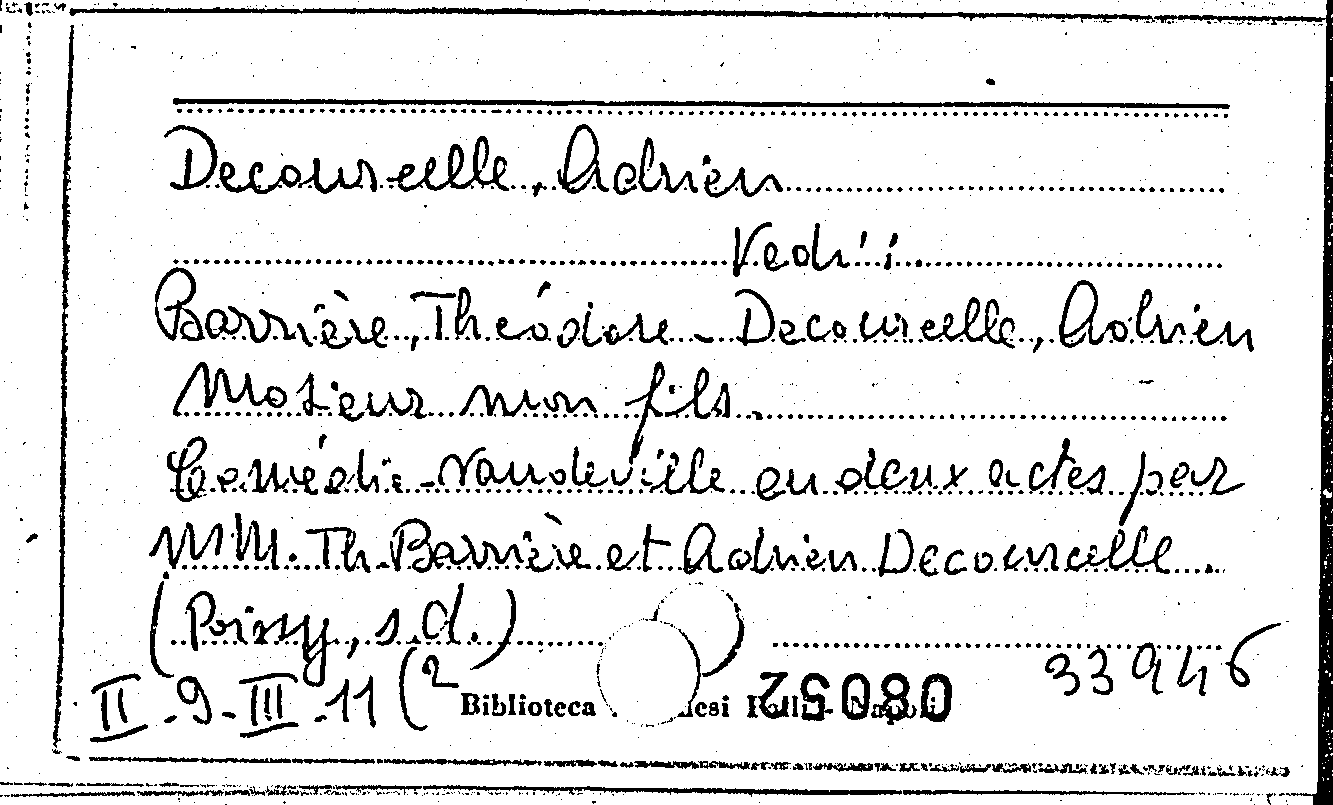 Decourcelle, Adrien
Vedi:
Barrière, Théodore - Decourcelle, Adrien
Mosieur mon fils.
Comédie-Vaudeville en deux actes par
MM. Th. Barrière et Adrien Decourcelle.
(Poissy, s.d.)
II-9-III-11(2 33946
Biblioteca Napoli
08052